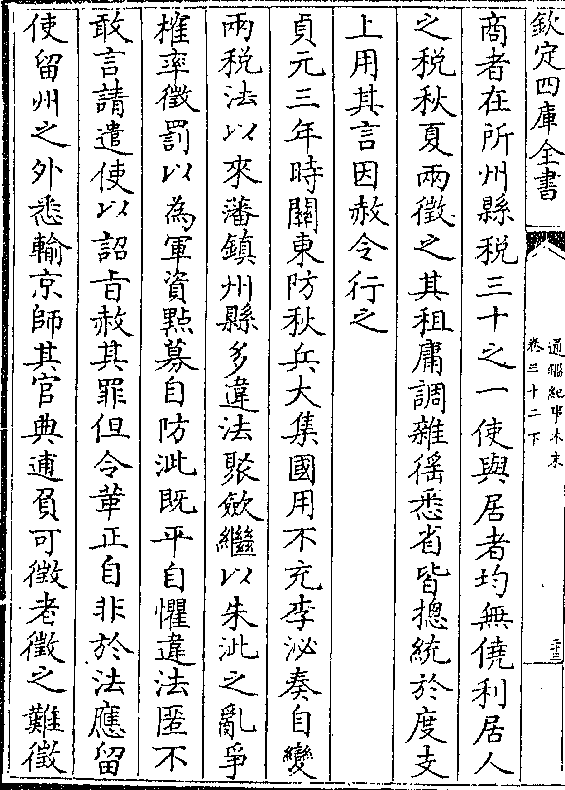 欽定四庫全書
通鑑紀事本末
卷三十二下
三十三
商者在所州縣税三十之一使與居者均無僥利居人
之税秋夏兩徵之其租庸調雜徭悉省皆摠統於度支
上用其言因赦令行之
貞元三年時關東防秋兵大集國用不充李泌奏自變
兩税法以來藩鎮州縣多違法聚斂繼以朱泚之亂爭
榷率徵罰以為軍資點募自防泚既平自懼違法匿不
敢言請遣使以詔㫖赦其罪但令革正自非於法應留
使留州之外悉輸京師其官典逋負可徵者徵之難徵